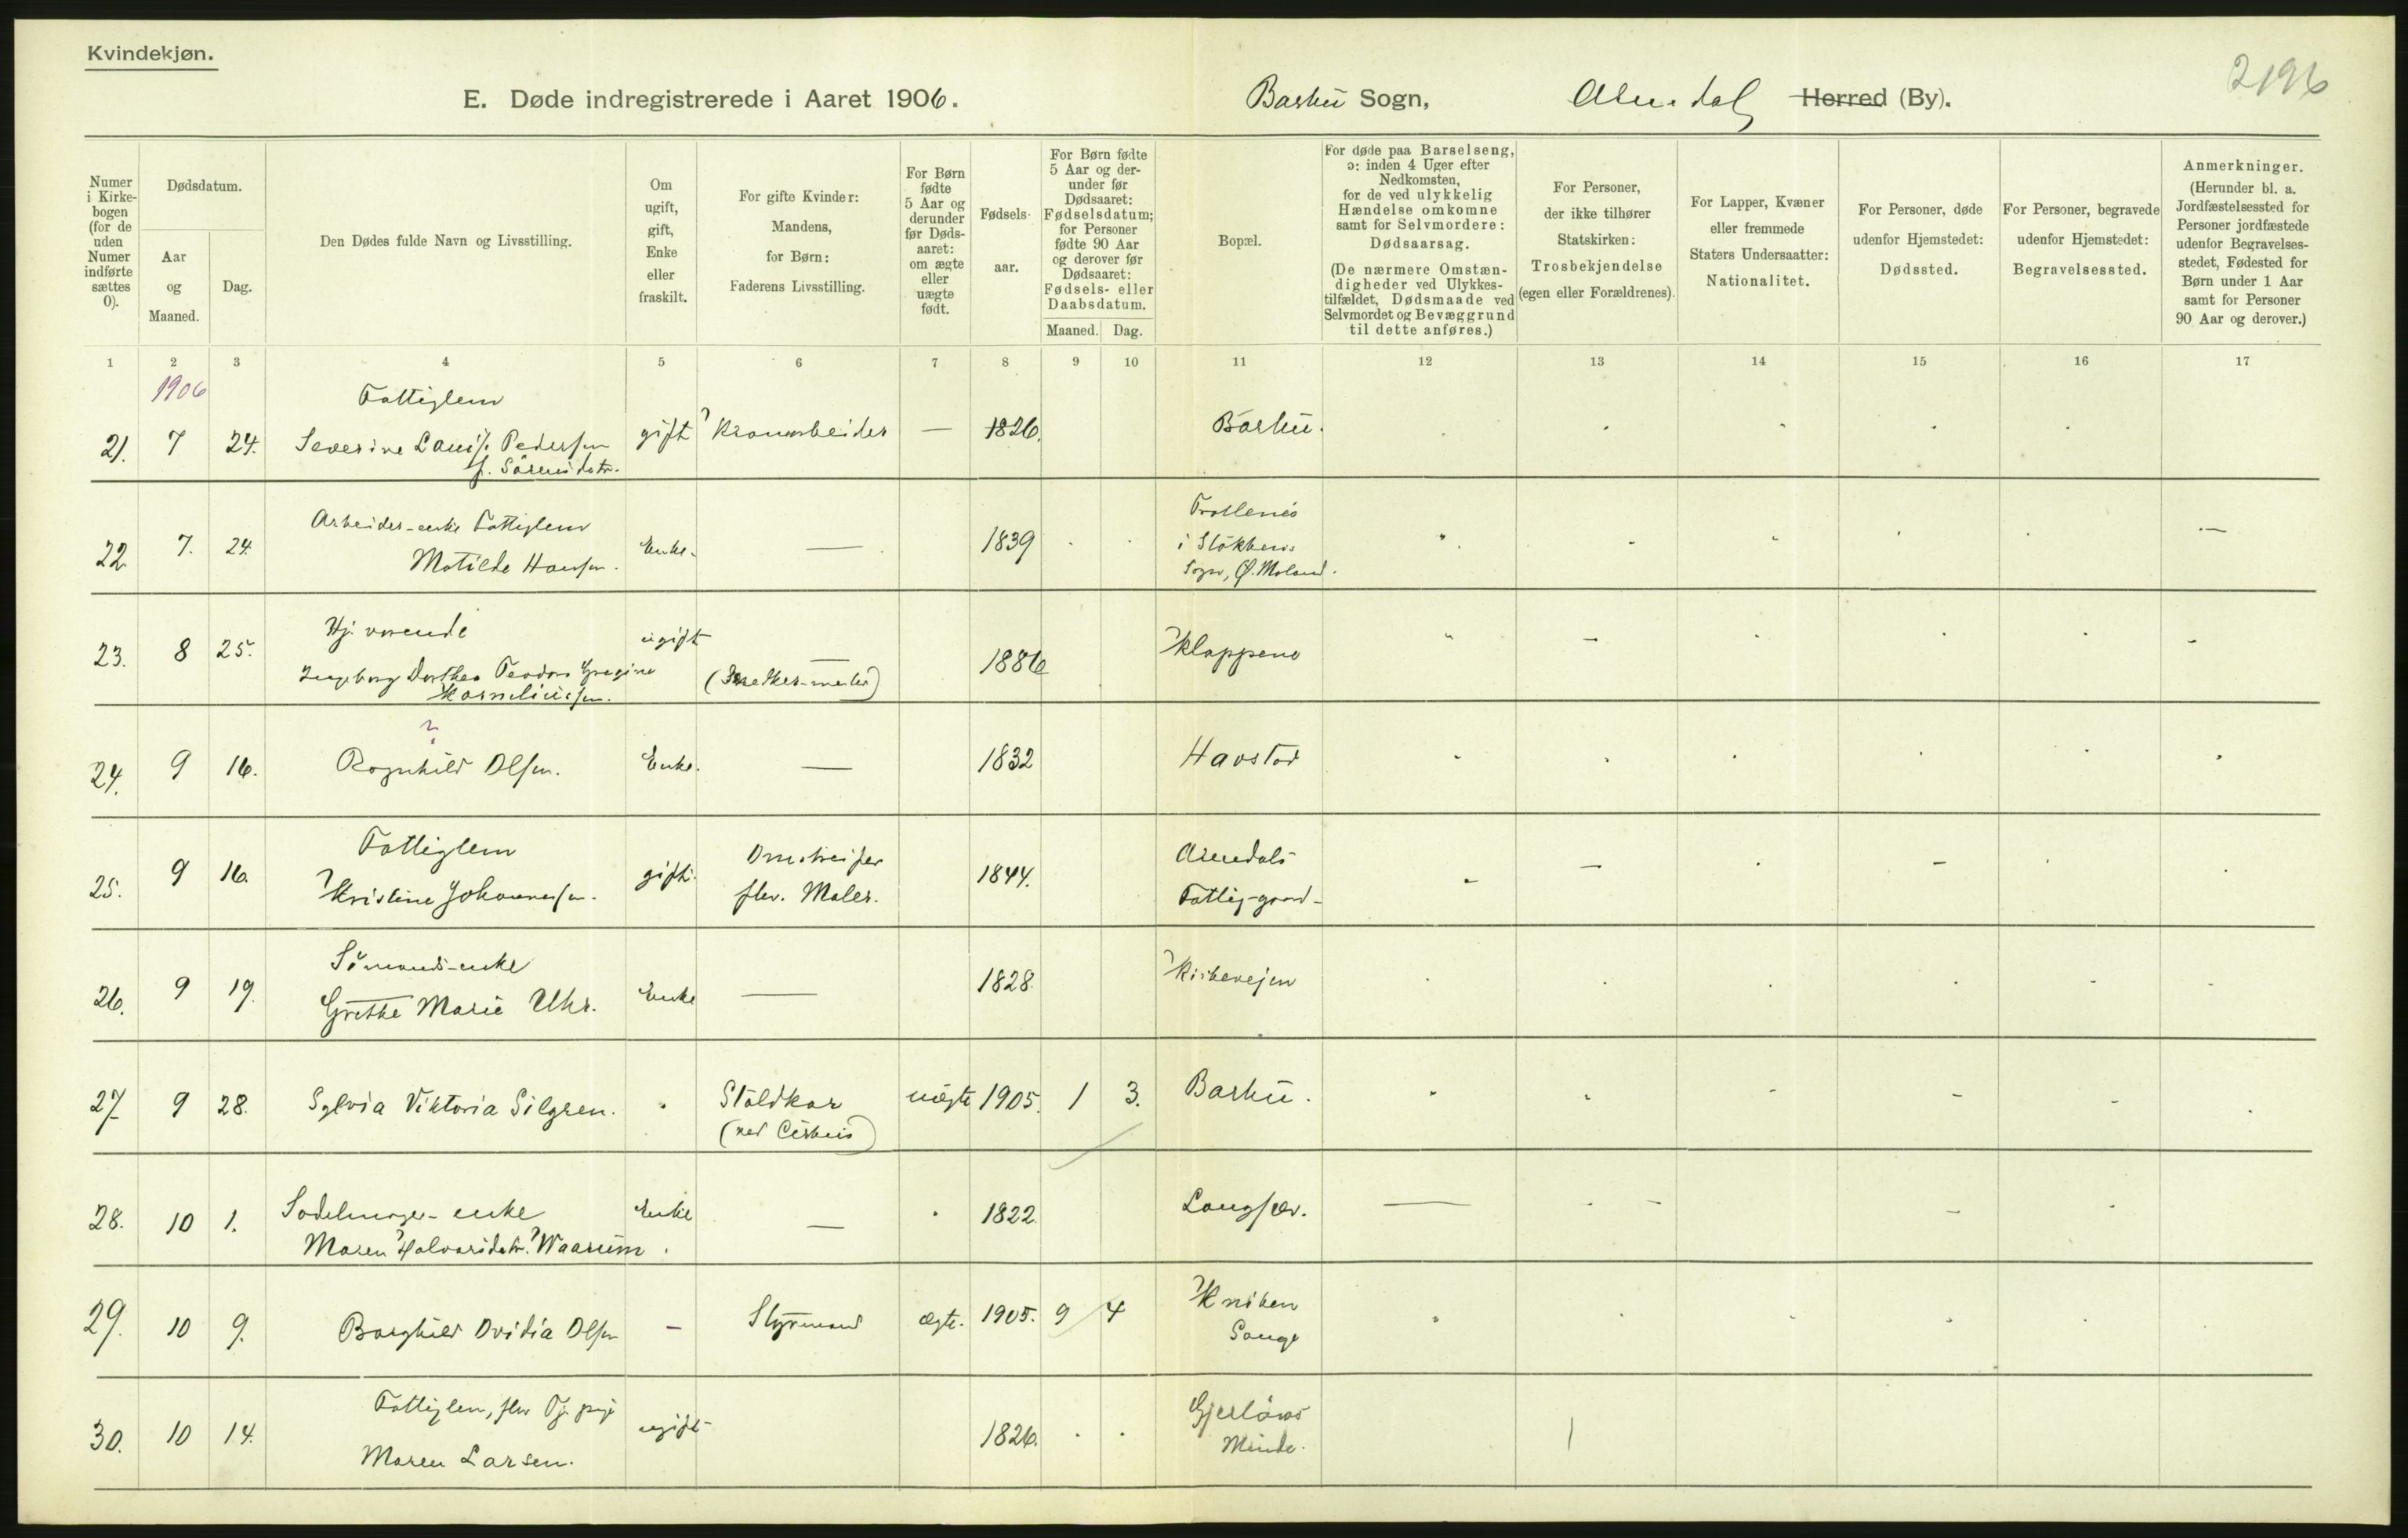 Kvindekjøn.
2196
E. Døde indregistrerede i Aaret 1906.
Barbu Sogn, Arendal Herred (By).
Numer i Kirke-bogen (for de uden Numer indførte sættes 0).
Dødsdatum.
Aar og Maaned.
Dag.
Den Dødes fulde Navn og Livsstilling.
Om ugift, gift, Enke eller fraskilt.
For gifte Kvinder: Mandens, for Børn: Faderens Livsstilling.
For Børn fødte 5 Aar og derunder før Døds-aaret: om ægte eller uægte født.
Fødsels-aar.
For Børn fødte 5 Aar og der-under før Dødsaaret: Fødselsdatum; for Personer fødte 90 Aar og derover før Dødsaaret: Fødsels- eller Daabsdatum.
Maaned. Dag.
Bopæl.
For døde paa Barselseng, ɔ: inden 4 Uger efter Nedkomsten, for de ved ulykkelig Hændelse omkomne samt for Selvmordere: Dødsaarsag. (De nærmere Omstæn-digheder ved Ulykkes-tilfældet, Dødsmaade ved Selvmordet og Bevæggrund til dette anføres.)
For Personer, der ikke tilhører Statskirken: Trosbekjendelse (egen eller Forældrenes).
For Lapper, Kvæner eller fremmede Staters Undersaatter: Nationalitet.
For Personer, døde udenfor Hjemstedet: Dødssted.
For Personer, begravede udenfor Hjemstedet: Begravelsessted.
Anmerkninger. (Herunder bl. a. Jordfæstelsessted for Personer jordfæstede udenfor Begravelses-stedet, Fødested for Børn under 1 Aar samt for Personer 90 Aar og derover.)
1 2 3 4 5 6 7 8 9 10 11 12 13 14 15 16 17
1906
Fattiglem
21. 7 24. Severine Louise Pedersen gift Kranarbeider — 1826. Barbu.
f. Sørensdatr.
Arbeider-enke Fattiglem
22. 7. 24. Matilde Hansen. Enke. — 1839
i Stokkens
Sogn, Ø. Moland.
Hj. værende
23. 8 25. Ingeborg Dorthea Teodora Gregine ugift — 1886 Klappene
Korneliussen. (Snedker-mester)
?
24. 9 16. Ragnhild Olsen. Enke. — 1832 Havstad
Fattiglem Omstreifer Arendals
25. 9 16. Kristine Johannessen. gift. flv. Maler. 1844. Fattig-gaard
Sömands-enke
26. 9 19. Grethe Marie Uhr. Enke — 1828. Kirkevejen
27. 9 28. Sylvia Viktoria Silgren. Staldkar uægte 1905. 1 3. Barbu.
(ved Cirkus)
Sadelmager-enke
28. 10 1. Maren Halvorsdatr. Waarum. Enke — 1822. Langsæ.
29. 10 9. Borghild Ovidia Olsen — Styrmand ægte. 1905. 9 4
Songe
Fattiglem, flv Tj. pige
30. 10 14. Maren Larsen. ugift 1826.
Minde.